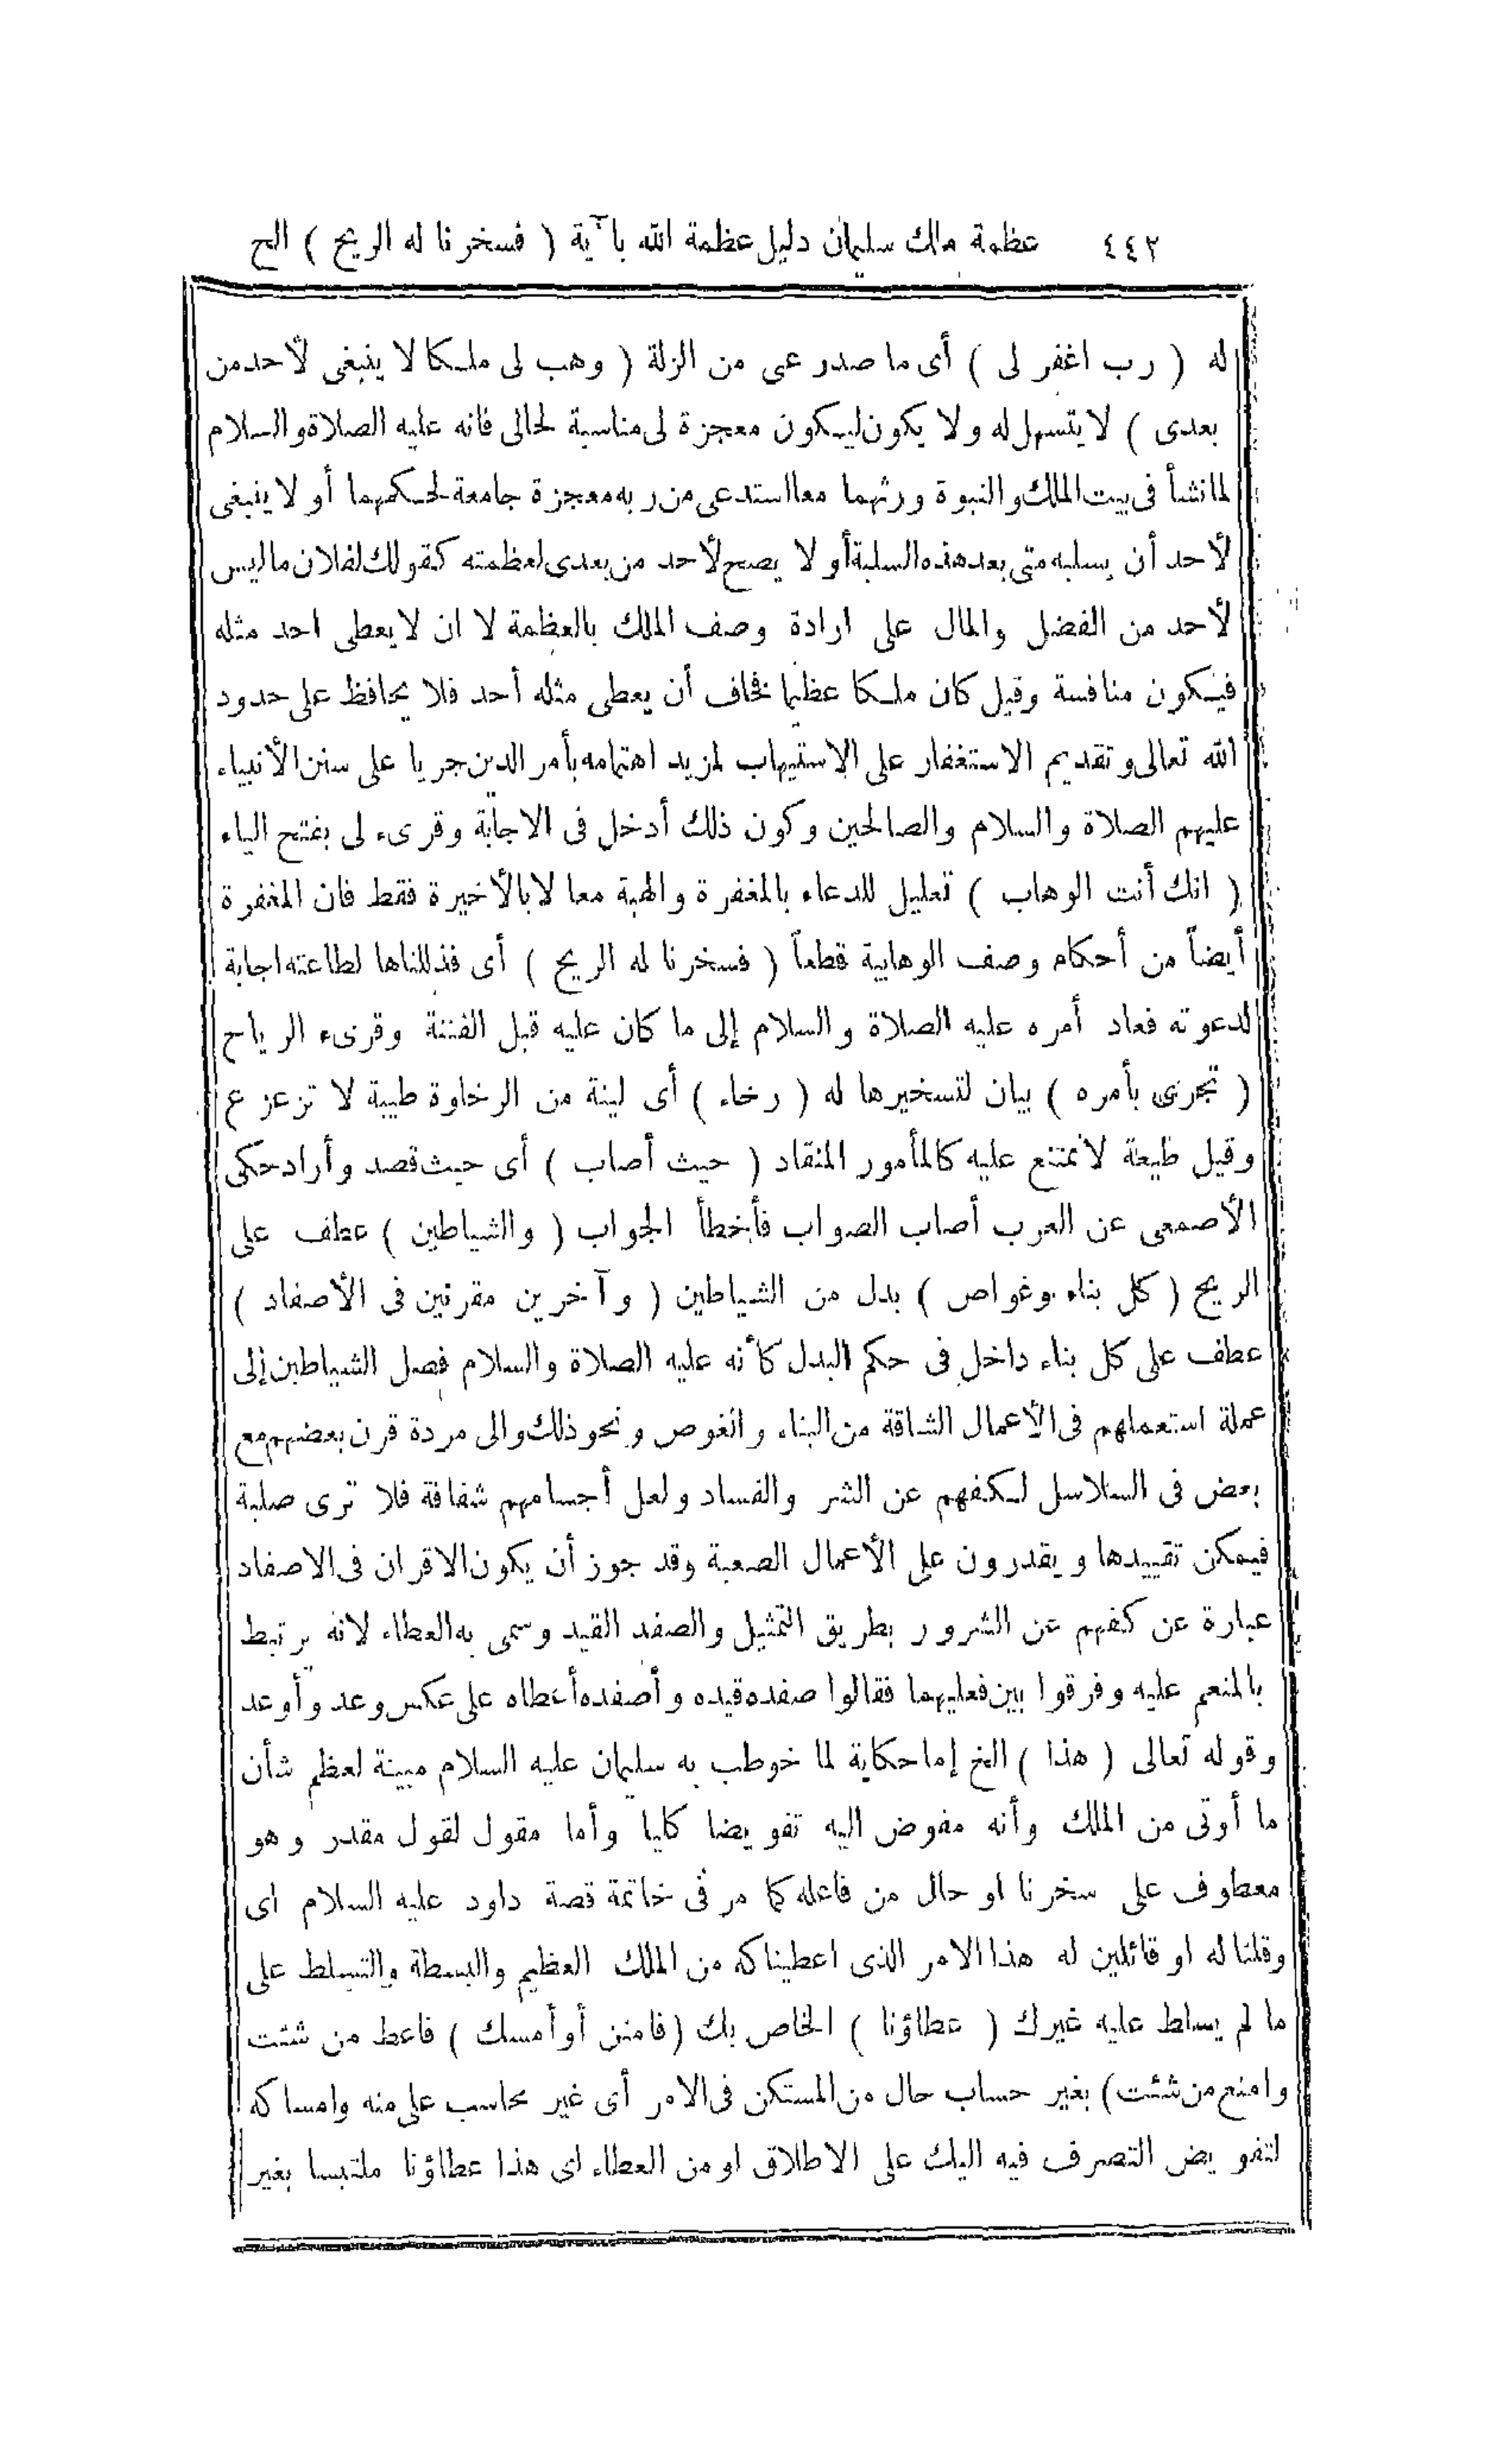 ٤٤٢ عظمة ملك سليمان دليل عظمة الله بآية ( فسخرنا له الريح ) الخ
له ( رب اغفر لى ) أى ما صدر عى من الزلة ( وهب لى ملكا لا ينبغى لأحد من
بعدى ) لا يتسهل له ولا يكون ليكون معجزة لى مناسبة لحالى فانه عليه الصلاة والسلام
لما نشأ فى بيت الملك والنبوة ورثهما معا استدعى من ربه معجزة جامعة لحكمهما أو لا ينبغى
لأحد أن يسلبه متى بعد هذه السلبة أو لا يصح لأحد من بعدى لعظمته كقولك لفلان ما ليس
لأحد من الفضل والمال على ارادة وصف الملك بالعظمة لا ان لا يعطى احد مثله
فيكون منافسة وقيل كان ملكا عظيما نخاف أن يعطى مثله أحد فلا يحافظ على حدود
الله تعالى وتقديم الاستغفار على الاستيهاب لمزيد اهتمامه بأمر الدين جريا على سنن الأنبياء
عليهم الصلاة والسلام والصالحين وكون ذلك أدخل فى الاجابة وقرىء لى بفتح الياء
( انك أنت الوهاب ) تعليل للدعاء بالمغفرة والهبة معا لا بالأخيرة فقط فان المغفرة
أيضاً من أحكام وصف الوهابية قطعاً ( فسخرنا له الريح ) أى فذللناها لطاعته اجابة
لدعوته فعاد أمره عليه الصلاة والسلام إلى ما كان عليه قبل الفتنة وقرىء الرياح
( تجرى بأمره ) بيان لتسخيرها له ( رخاء ) أى لينة من الرخاوة طيبة لا تزعزع
وقيل طيعة لا تمتنع عليه كالمأمور المنقاد ( حيث أصاب ) أى حيث قصد وأراد حكى
الأصمعى عن العرب أصاب الصواب فأخطأ الجواب ( والشياطين ) عطف على
الريح ( كل بناء وغواص ) بدل من الشياطين ( وآخرين مقرنين فى الأصفاد )
عطف على كل بناء داخل فى حكم البدل كأنه عليه الصلاة والسلام فصل الشياطين إلى
عملة استعملهم فى الأعمال الشاقة من البناء والغوص ونحو ذلك والى مردة قرن بعضهم مع
بعض فى السلاسل لكفهم عن الشر والفساد ولعل أجسامهم شفافة فلا ترى صلبة
فيمكن تقييدها ويقدرون على الأعمال الصعبة وقد جوز أن يكون الاقران فى الاصفاد
عبارة عن كفهم عن الشرور بطريق التمثيل والصفد القيد وسمى به العطاء لانه يرتبط
بالمنعم عليه وفرقوا بين فعليهما فقالوا صفده قيده وأصفده أعطاه على عكس وعد وأوعد
وقوله تعالى ( هذا ) الخ إما حكاية لما خوطب به سليمان عليه السلام مبينة لعظم شأن
ما أوتى من الملك وأنه مفوض اليه تفويضا كليا وأما مقول لقول مقدر وهو
معطوف على سخرنا او حال من فاعله كما مر فى خاتمة قصة داود عليه السلام اى
وقلنا له او قائلين له هذا الامر الذى اعطيناكه من الملك العظيم والبسطة والتسلط على
ما لم يسلط عليه غيرك ( عطاؤنا ) الخاص بك (فامنن أو أمسك ) فاعط من شئت
وامنع من شئت) بغير حساب حال من المستكن فى الامر أى غير محاسب على منه وامساكه
لتفويض التصرف فيه اليك على الاطلاق او من العطاء اى هذا عطاؤنا ملتبسا بغير